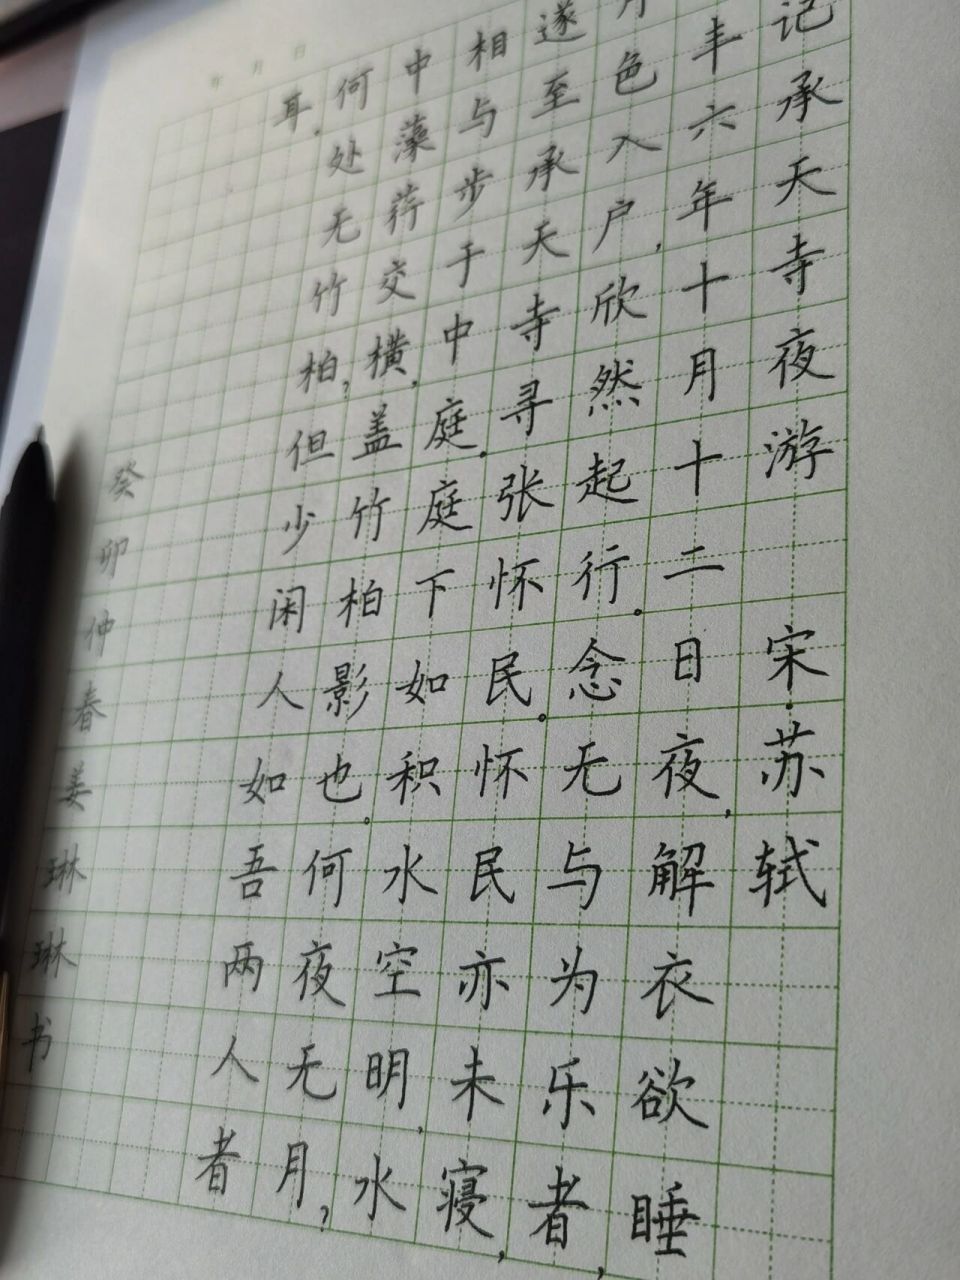 年 月 日
记承天寺夜游 宋.苏轼
丰六年十月十二日夜,解衣欲睡
月色入户,欣然起行。念无与为乐者,
遂至承天寺寻张怀民。怀民亦未寝,
相与步于中庭。庭下如积水空明,水
中藻荇交横,盖竹柏影也。何夜无月?
何处无竹柏,但少闲人如吾两人者
耳。
癸卯仲春姜琳琳书